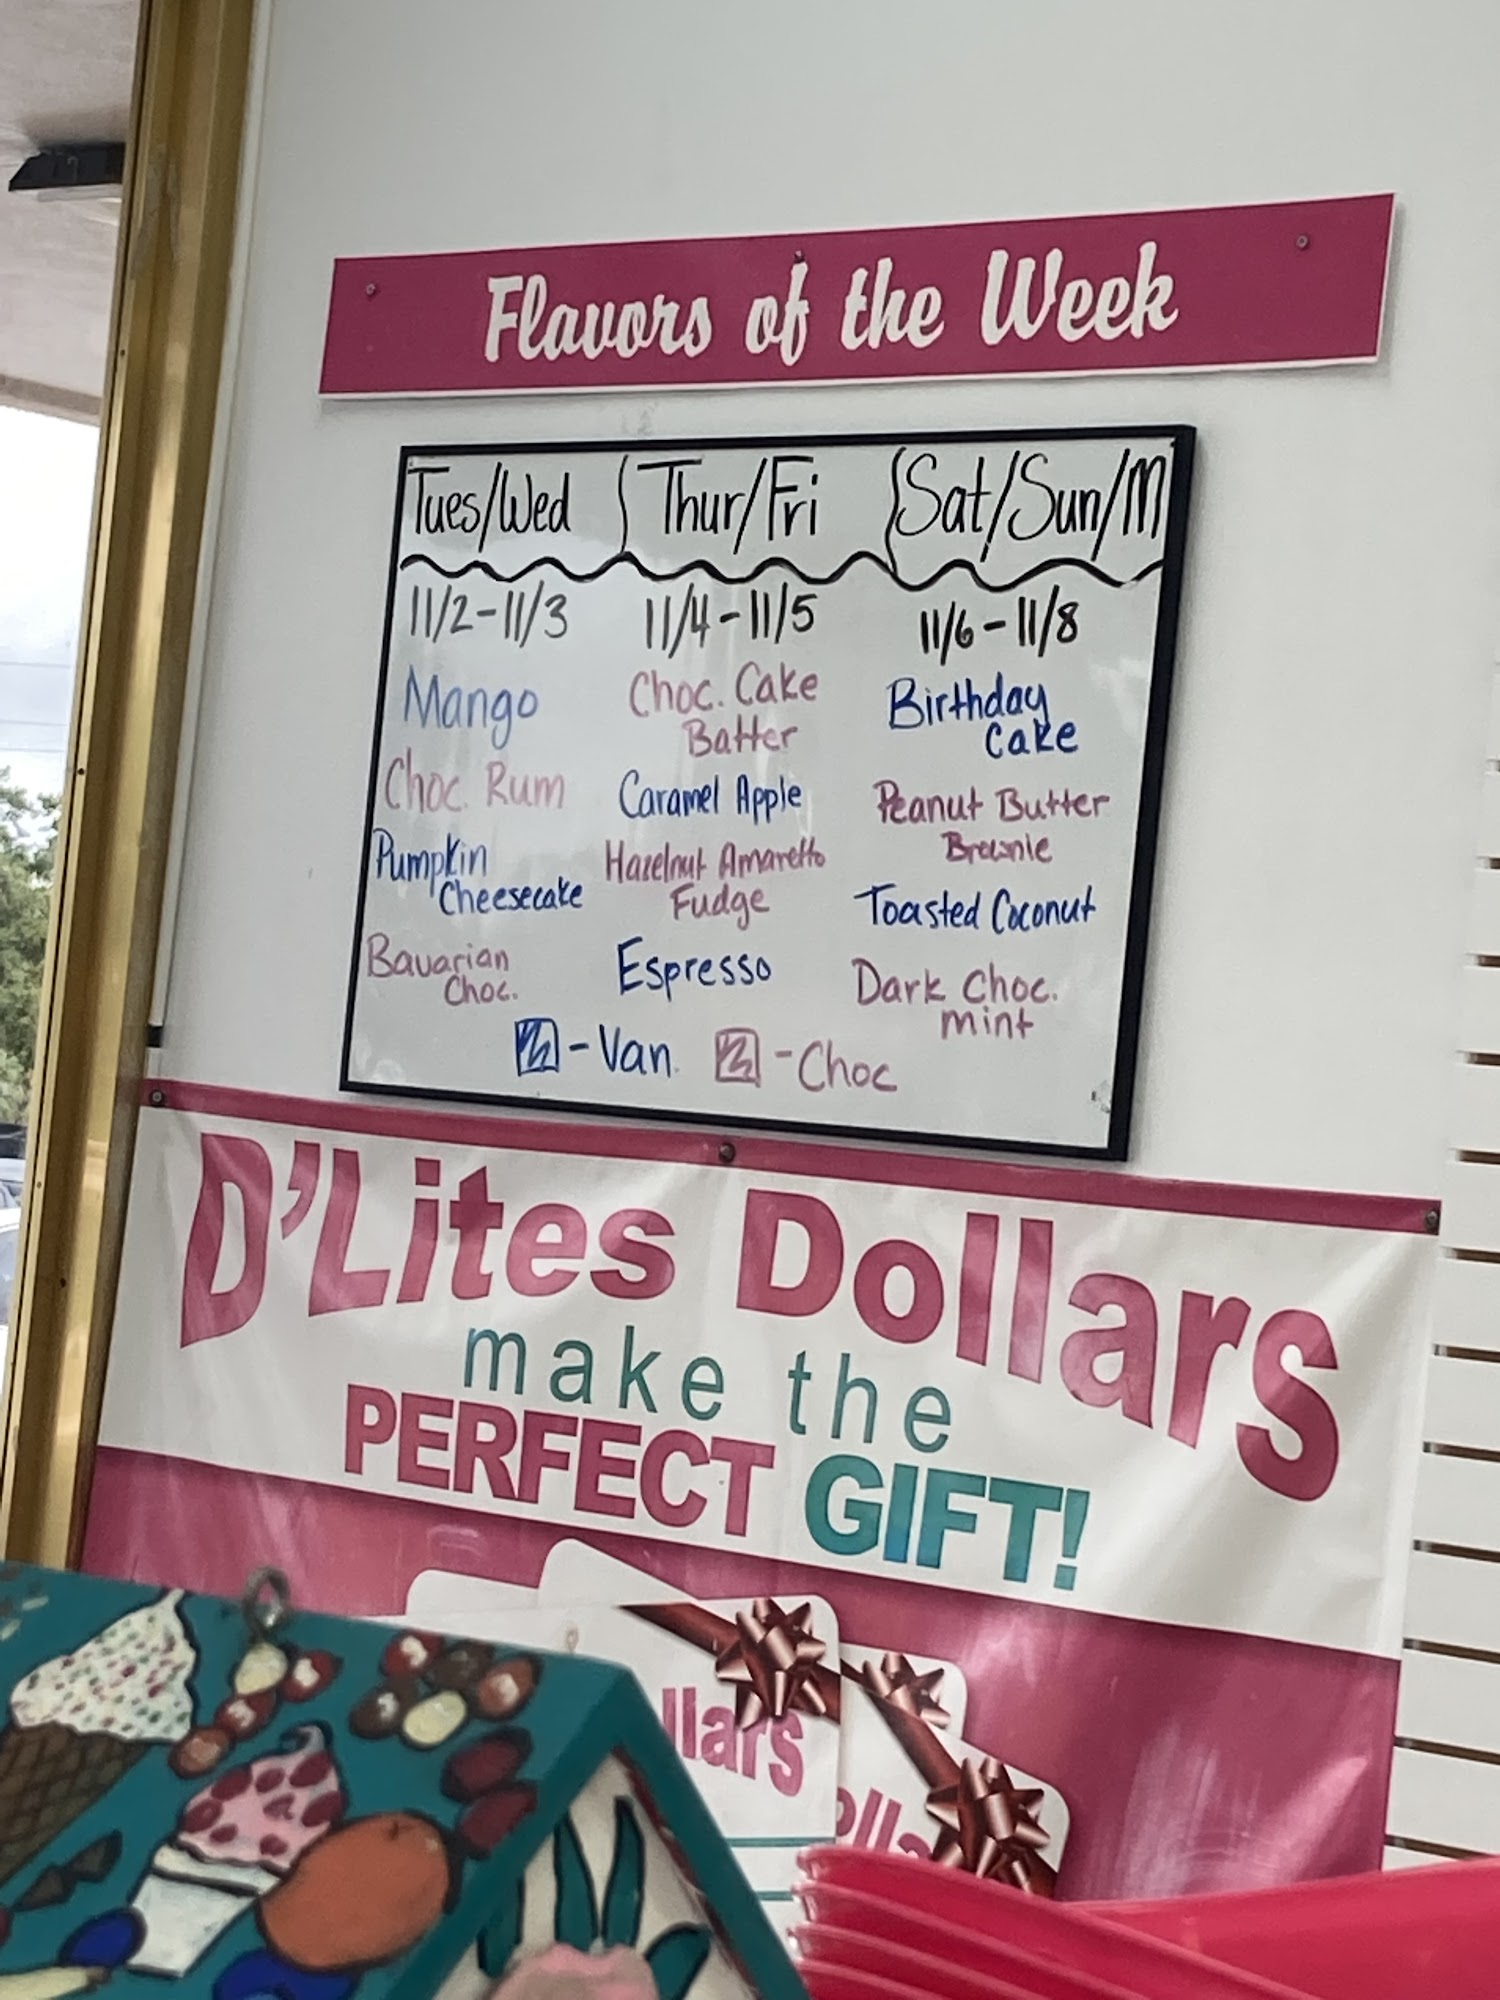 Flavors of the Week
Tues/Wed
Thur/Fri
Sat/Sun/M
11/2-11/3
11/4-11/5
11/6-11/8
Mango
Choc. Rum
Pumpkin
Cheesecake
Bavarian
Choc.
Choc. Cake
Batter
Caramel Apple
Hazelnut Amaretto
Fudge
Espresso
Birthday
Cake
Peanut Butter
Brownie
Toasted Coconut
Dark Choc.
mint
-Van. -Choc
D'Lites Dollars
make the
PERFECT GIFT!
llars
olla